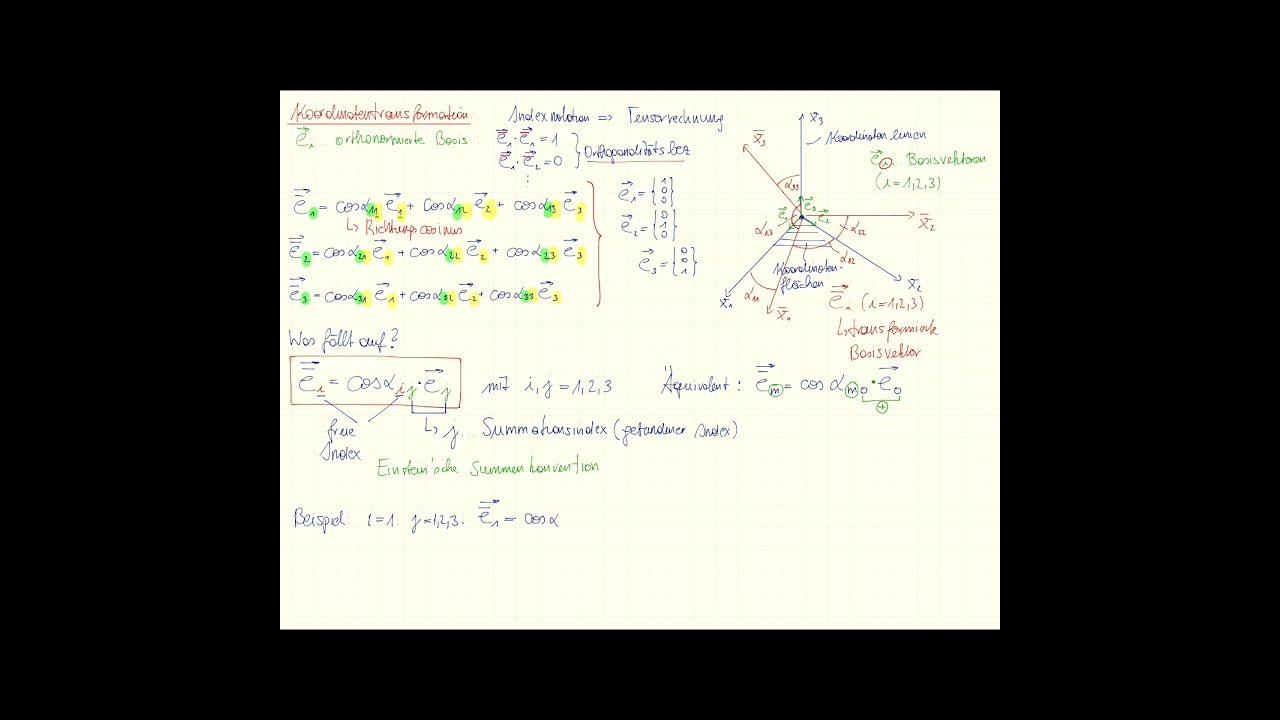 Koordinatentransformation:
Indexnotation => Tensorrechnung
e⃗₁ ... orthonormierte Basis:
e⃗₁·e⃗₁ = 1
e⃗₁·e⃗₂ = 0
Orthogonalitätsbez.
⋮
e̅⃗₁ = cosα₁₁ e⃗₁ + cosα₁₂ e⃗₂ + cosα₁₃ e⃗₃
↳ Richtungscosinus
e̅⃗₂ = cosα₂₁ e⃗₁ + cosα₂₂ e⃗₂ + cosα₂₃ e⃗₃
e̅⃗₃ = cosα₃₁ e⃗₁ + cosα₃₂ e⃗₂ + cosα₃₃ e⃗₃
e⃗₁ = {1 0 0}
e⃗₂ = {0 1 0}
e⃗₃ = {0 0 1}
x₃
x̅₃
Koordinatenlinien
e⃗ᵢ ... Basisvektoren
(i=1,2,3)
α₃₃
e⃗₃
e⃗₁
e⃗₂
x̅₂
α₁₃
α₂₂
α₁₂
Koordinaten-
flächen
x₂
α₁₁
x₁
x̅₁
e̅⃗ᵢ (i=1,2,3)
↳ transformierte
Basisvektor
Was fällt auf?
e̅⃗ᵢ = cosαᵢⱼ · e⃗ⱼ mit i, j = 1,2,3 Äquivalent: e̅⃗ₘ = cos αₘₒ · e⃗ₒ
+
freie
Index
↳ j... Summationsindex (gebundener Index)
Einstein'sche Summenkonvention
Beispiel: i=1: j=1,2,3: e̅⃗₁ = cosα